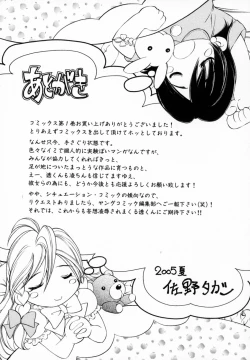 あとがき
コミックス第1巻お買い上げありがとうございました！
とりあえずコミックスを出して頂けてホッとしております。
なんせ只今、手さぐり状態。
色々なイミで個人的に実験ぽいマンガなんですが、
みんなが協力してくれればきっと、
足が地についたまっとうな作品に育つものと、
えー、透くんも凌ちゃんも信じてますゆえ、
彼女らの為にも、どうか今後とも応援よろしくお願い致します！
やや、シチュエーション・コミックの傾向なので、
リクエストありましたら、ヤングコミック編集部へご一報下さい(笑)！
それでは、これからも妄想浪費されまくる透くんにご期待下さい!!
2005夏
佐野タガ